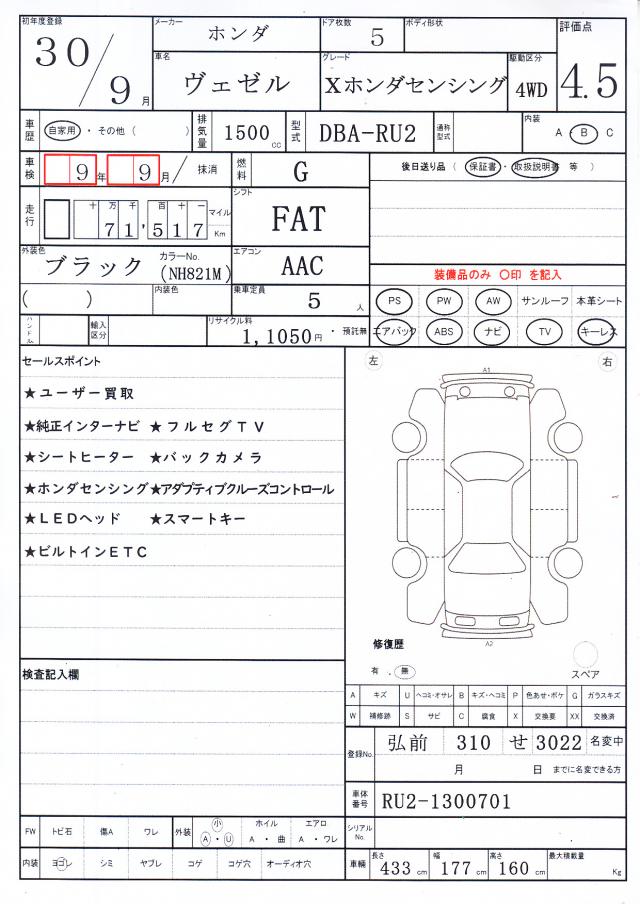 初年度登録 30/9月 メーカー ホンダ ドア枚数 5 ボディ形状 評価点 4.5
車名 ヴェゼル グレード Xホンダセンシング 駆動区分 4WD
車歴 自家用・その他( ) 排気量 1500cc 型式 DBA-RU2 通称型式 内装 A・B C
車検 9年 9月/抹消 燃料 G 後日送り品(保証書・取扱説明書 等)
走行 十万千百十一 71,517 マイル Km シフト FAT
外装色 ブラック カラーNo. (NH821M) エアコン AAC 装備品のみ 〇印 を記入
( ) 内装色 乗車定員 5人 PS PW AW サンルーフ 本革シート
ハンドル 輸入区分 リサイクル料 1,1050円・預託無 エアバック ABS ナビ TV キーレス
セールスポイント 左 右
★ユーザー買取 A1
★純正インターナビ ★フルセグTV
★シートヒーター ★バックカメラ
★ホンダセンシング★アダプティブクルーズコントロール
★LEDヘッド ★スマートキー
★ビルトインETC
A2
修復歴
有.無 スペア
検査記入欄
A キズ U ヘコミ・オサレ B キズ・ヘコミ P 色あせ・ボケ G ガラスキズ
W 補修跡 S サビ C 腐食 X 交換要 XX 交換済
登録No. 弘前 310 せ 3022 名変中
月 日 までに名変できる方
車体番号 RU2-1300701
FW トビ石 傷A ワレ 外装 小 A・U ホイル A・曲 エアロ A・ワレ シリアルNo.
内装 ヨゴレ シミ ヤブレ コゲ コゲ穴 オーディオ穴 車輛 長さ 433cm 幅 177cm 高さ 160cm 最大積載量 Kg